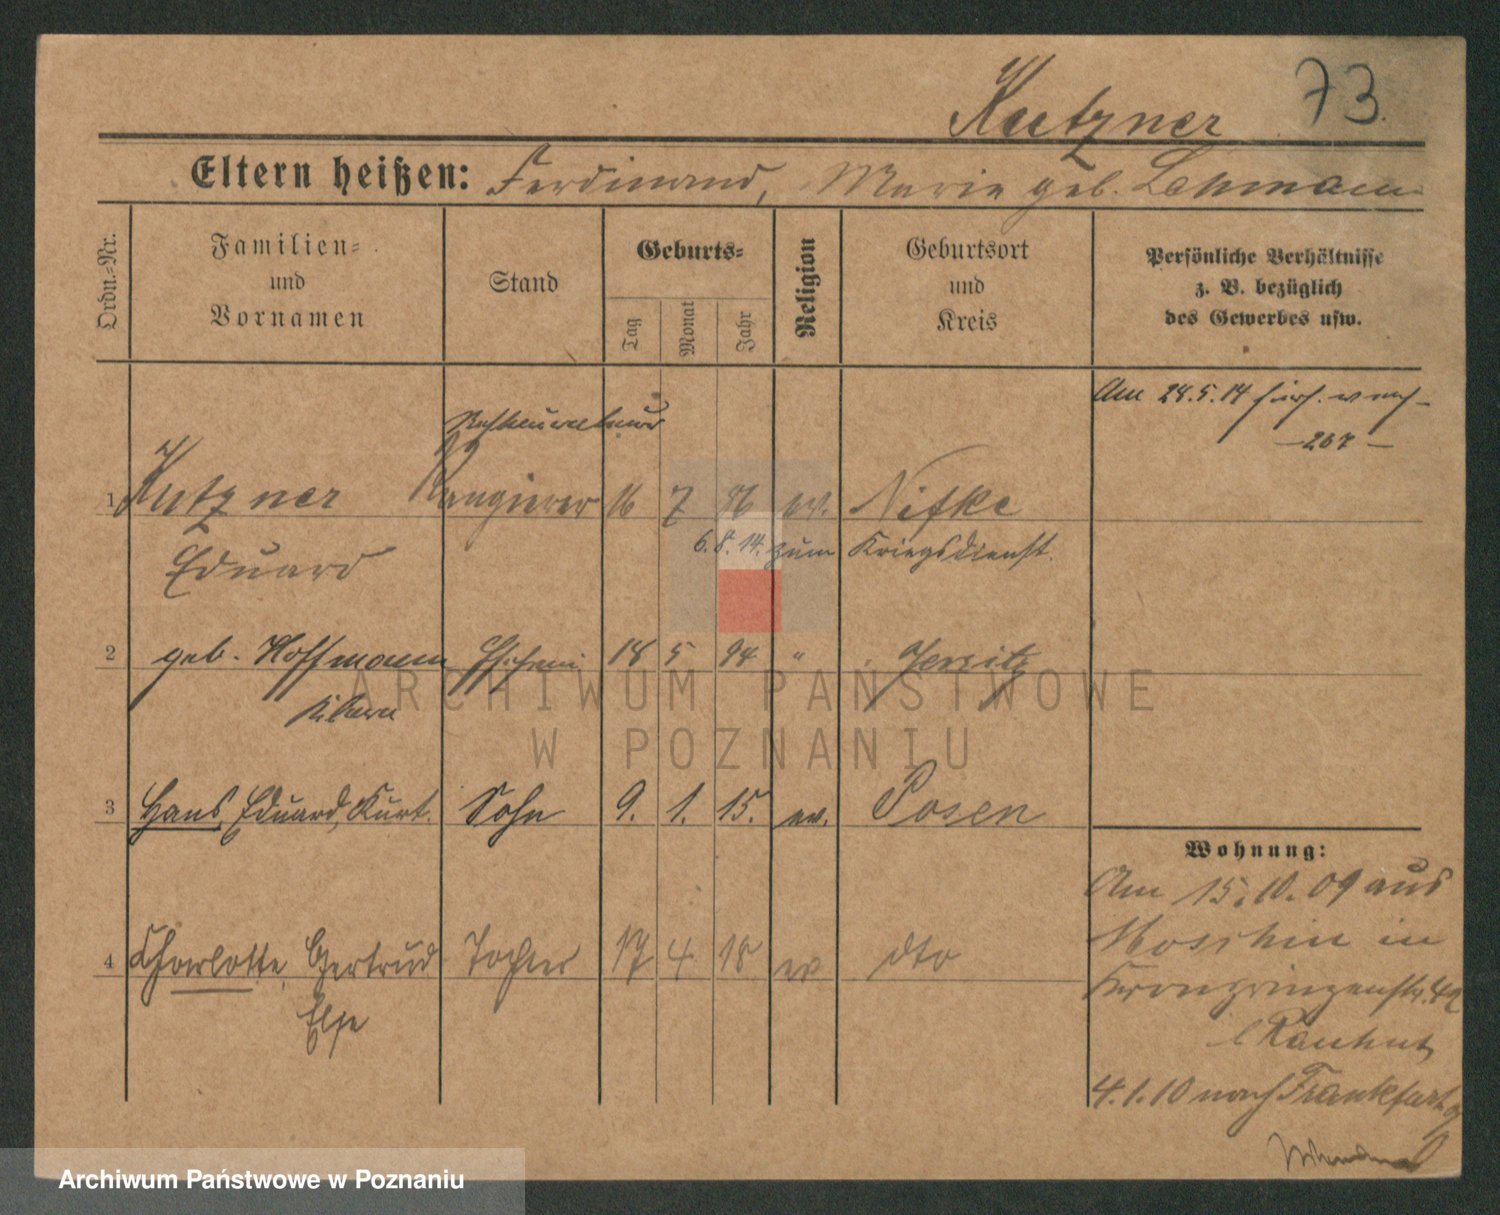 Kutzner 73.
Eltern heißen: Ferdinand, Marie geb. Lehmann
Ordn.=Nr.
Familien=
und
Vornamen
Stand
Geburts=
Tag
Monat
Jahr
Religion
Geburtsort
und
Kreis
Persönliche Verhältnisse
z. B. bezüglich
des Gewerbes usw.
Am 28.5.14
— 267 —
1 Kutzner Rangierer 16 7 86 ev. Nifke
6.8.14. zum Kriegsdienst.
Eduard
2 geb. Hoffmann Ehefrau 18 5 94 " Jersitz
3 Hans, Eduard, Kurt. Sohn 9. 1. 15. ev. Posen
4 Charlotte, Gertrud Tochter 17 4 18 ev dto
Else
Wohnung:
Am 15.10.09 aus
Moschin in
Kronprinzenstr.
Rauhut
4.1.10 nach Frankfurt
ARCHIWUM PAŃSTWOWE
W POZNANIU
Archiwum Państwowe w Poznaniu